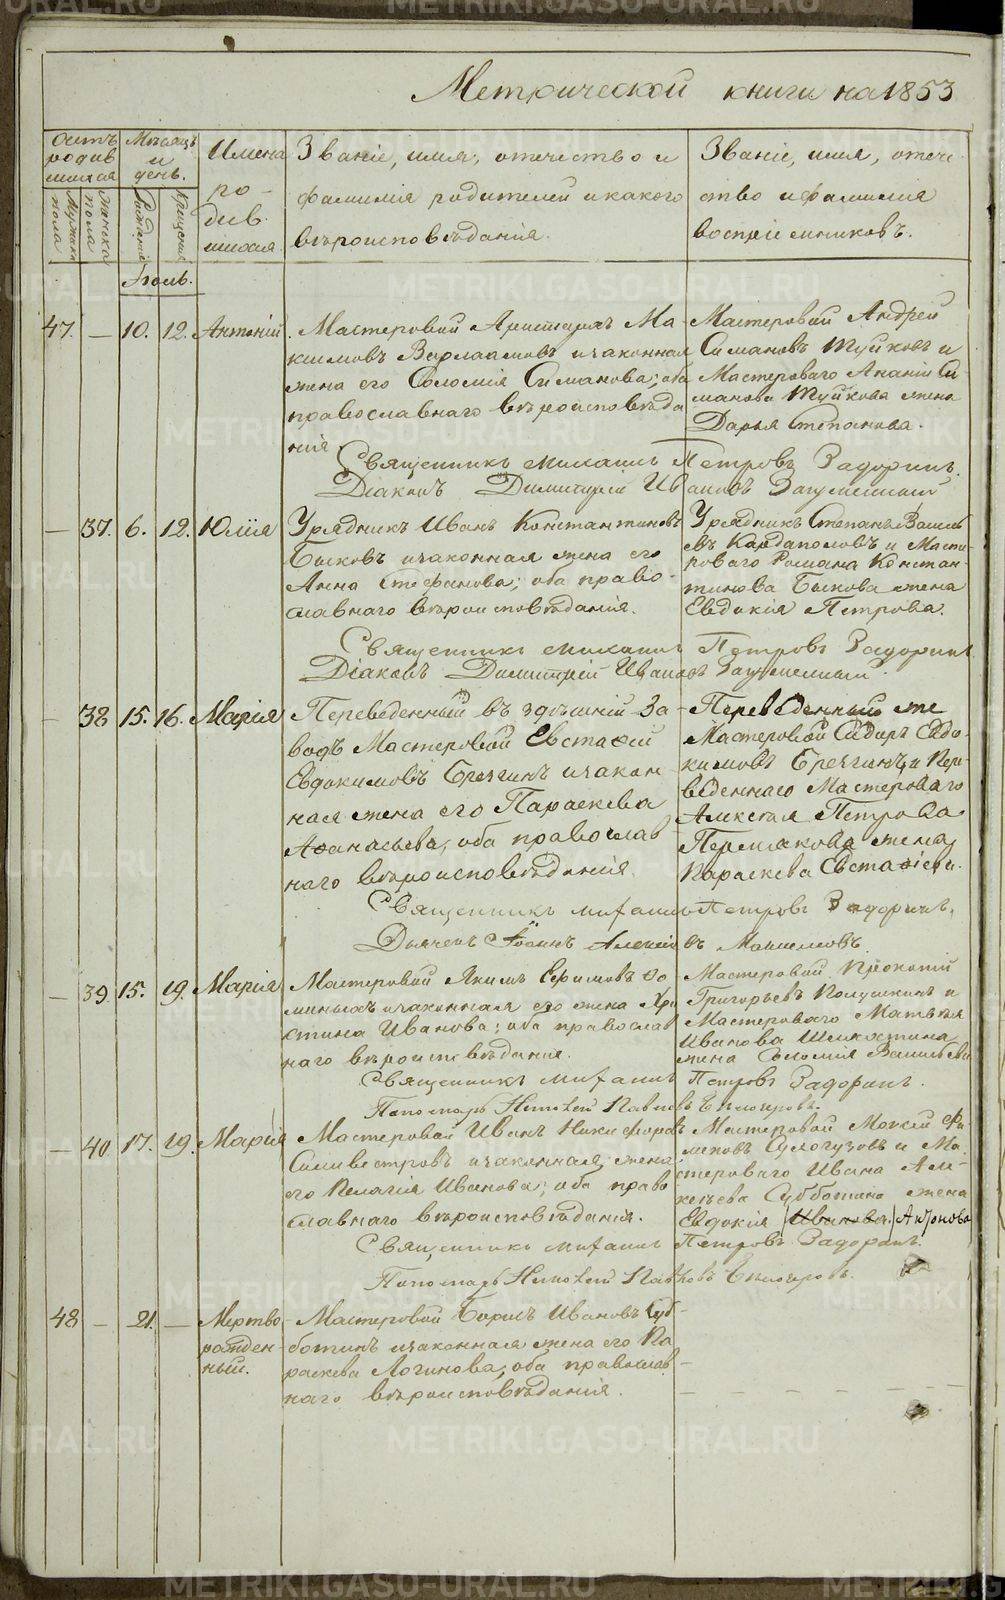 Метрической книги на 1853
Счетъ родив шихся
Мужска пола
Женска пола
Мѣсяцъ и день.
Рожденія
Крещенія
Имена ро- див. шихся
Званіе, имя, отечество и
фамилія родителей и какого
вѣроисповѣданія.
Званіе, имя, отече-
ство и фамилія
воспріемниковъ.
Іюль.
47. — 10. 12. Антоній
Мастеровой Аристархъ Ма-
ксимовъ Варлаамовъ и законная
жена его Соломія Симанова; оба
православнаго вѣроисповѣда
нія
Мастеровой Андрей
Симановъ Туйковъ и
Мастероваго Ананія Си-
манова Туйкова жена
Дарья Степанова.
Священникъ Михаилъ Петровъ Задоринъ.
Діаконъ Димитрій Ивановъ
— 37. 6. 12. Юлія
Урядникъ Иванъ Константиновъ
Быковъ и законная жена его
Анна Стефанова; оба право-
славнаго вѣроисповѣданія.
Урядникъ Степанъ Василь
евъ Кардаполовъ и Масте-
роваго Романа Констан-
тинова Быкова жена
Евдокія Петрова.
Священникъ Михаилъ Петровъ Задоринъ.
Діаконъ Димитрій Ивановъ
— 38 15. 16. Марія
Переведенный въ здѣшній За-
водъ Мастеровой Евстаѳій
Евдокимовъ Брезгинъ и закон-
ная жена его Параскева
Аѳанасьева, оба православ
наго вѣроисповѣданія.
Переведенный же
Мастеровой Сидоръ Евдо-
кимовъ Брезгинъ и Пере-
веденнаго Мастероваго
Алексѣя Петрова
Пермякова жена
Параскева Евстаѳіева.
Священникъ Михаилъ Петровъ Задоринъ.
Дьячекъ Іоаннъ Алексіевъ
— 39. 15. 19. Марія
Мастеровой Якимъ Ефимовъ Ѳо
миныхъ и законная его жена Хри
стина Иванова; оба православ
наго вѣроисповѣданія.
Мастеровой Прокопій
Григорьевъ Полушкинъ и
Мастероваго Матвѣя
Иванова
жена Соломія Васильева
Священникъ Михаилъ Петровъ Задоринъ.
Пономарь Павловъ
— 40. 17. 19. Марія
Мастеровой Иванъ Никифоровъ
Сильвестровъ и законная жена
его Пелагія Иванова; оба право
славнаго вѣроисповѣданія.
Мастеровой Моисей Фи-
липовъ и Ма-
стероваго Ивана Але-
ксѣева Субботина жена
Евдокія Иванова. Антонова
Священникъ Михаилъ Петровъ Задоринъ.
Пономарь Павловъ
48 — 21. — Мертво рожден- ный.
Мастеровой Борисъ Ивановъ Суб-
ботинъ и законная жена его Па
раскева Логинова; оба православ-
наго вѣроисповѣданія.
METRIKI.GASO-URAL.RU